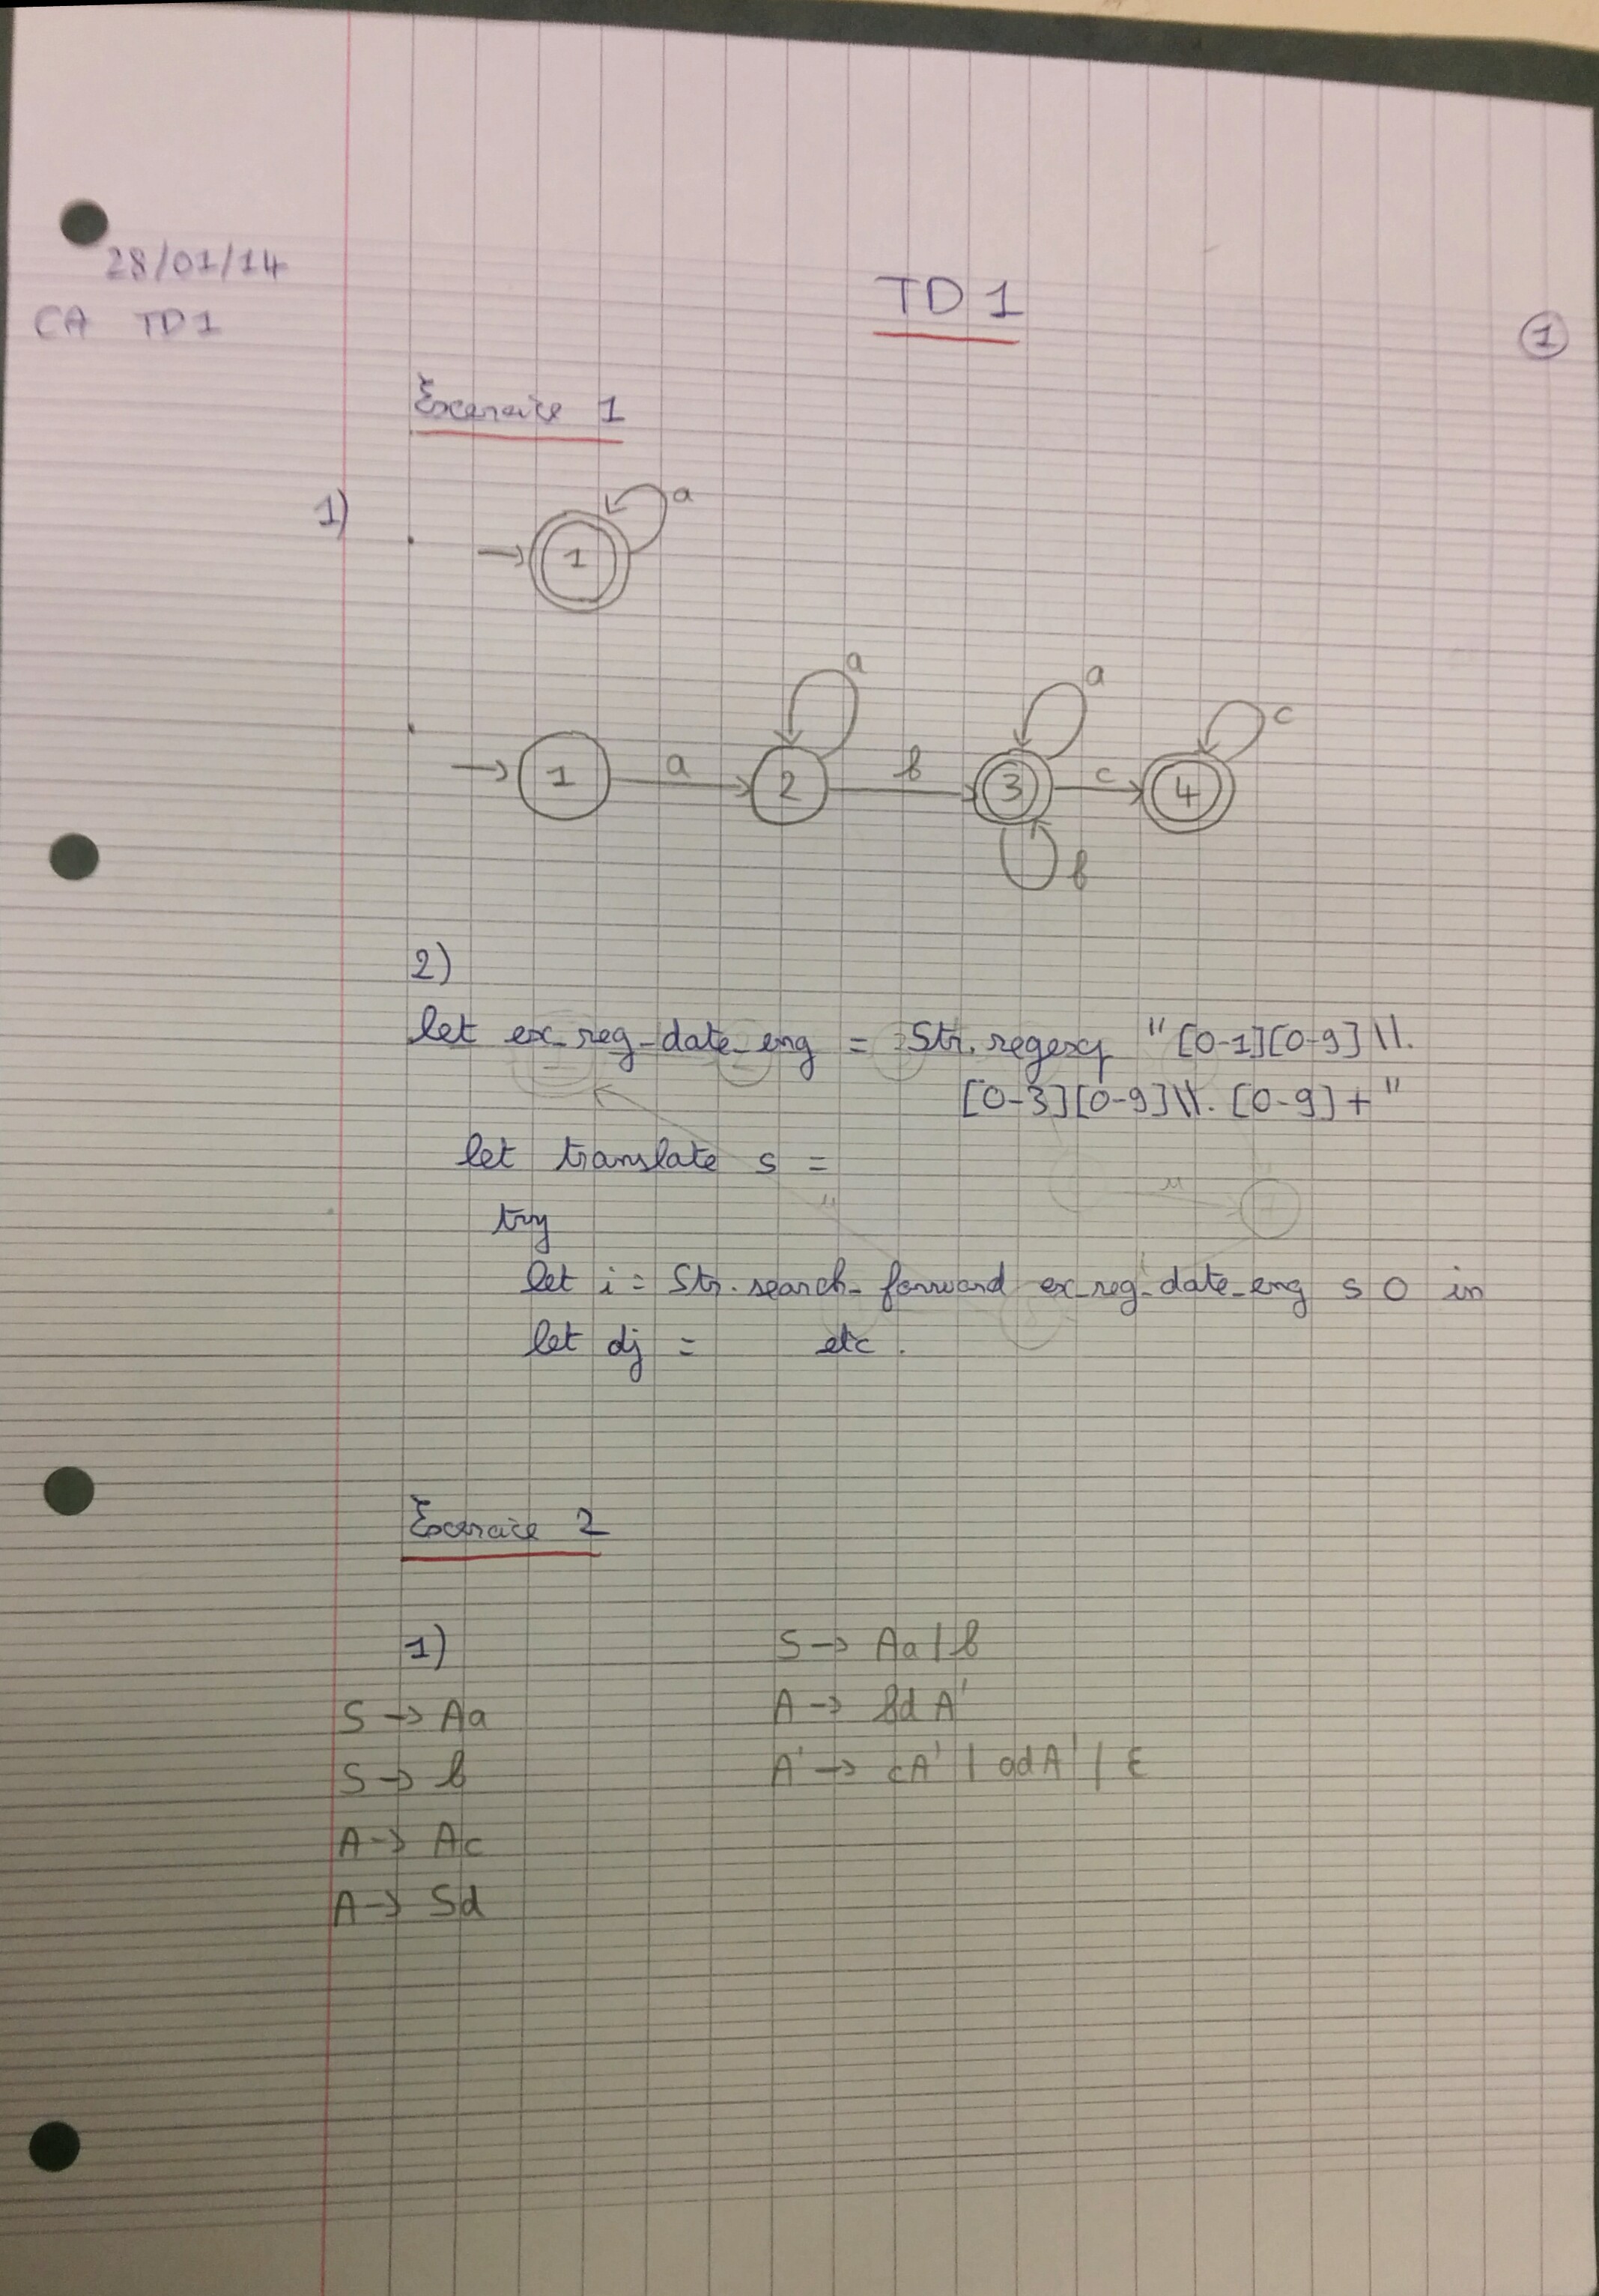 28/01/14
CA TD1
TD 1
1
Exercice 1
1)
1 a
1 a 2 a b 3 a b c 4 c
2)
let ex_reg_date_eng = Str.regexp "[0-1][0-9]\\.
[0-3][0-9]\\.[0-9]+"
let translate s =
try
let i = Str.search_forward ex_reg_date_eng s 0 in
let dj = etc.
Exercice 2
1)
S → Aa
S → b
A → Ac
A → Sd
S → Aa | b
A → bd A'
A' → cA' | adA' | ε